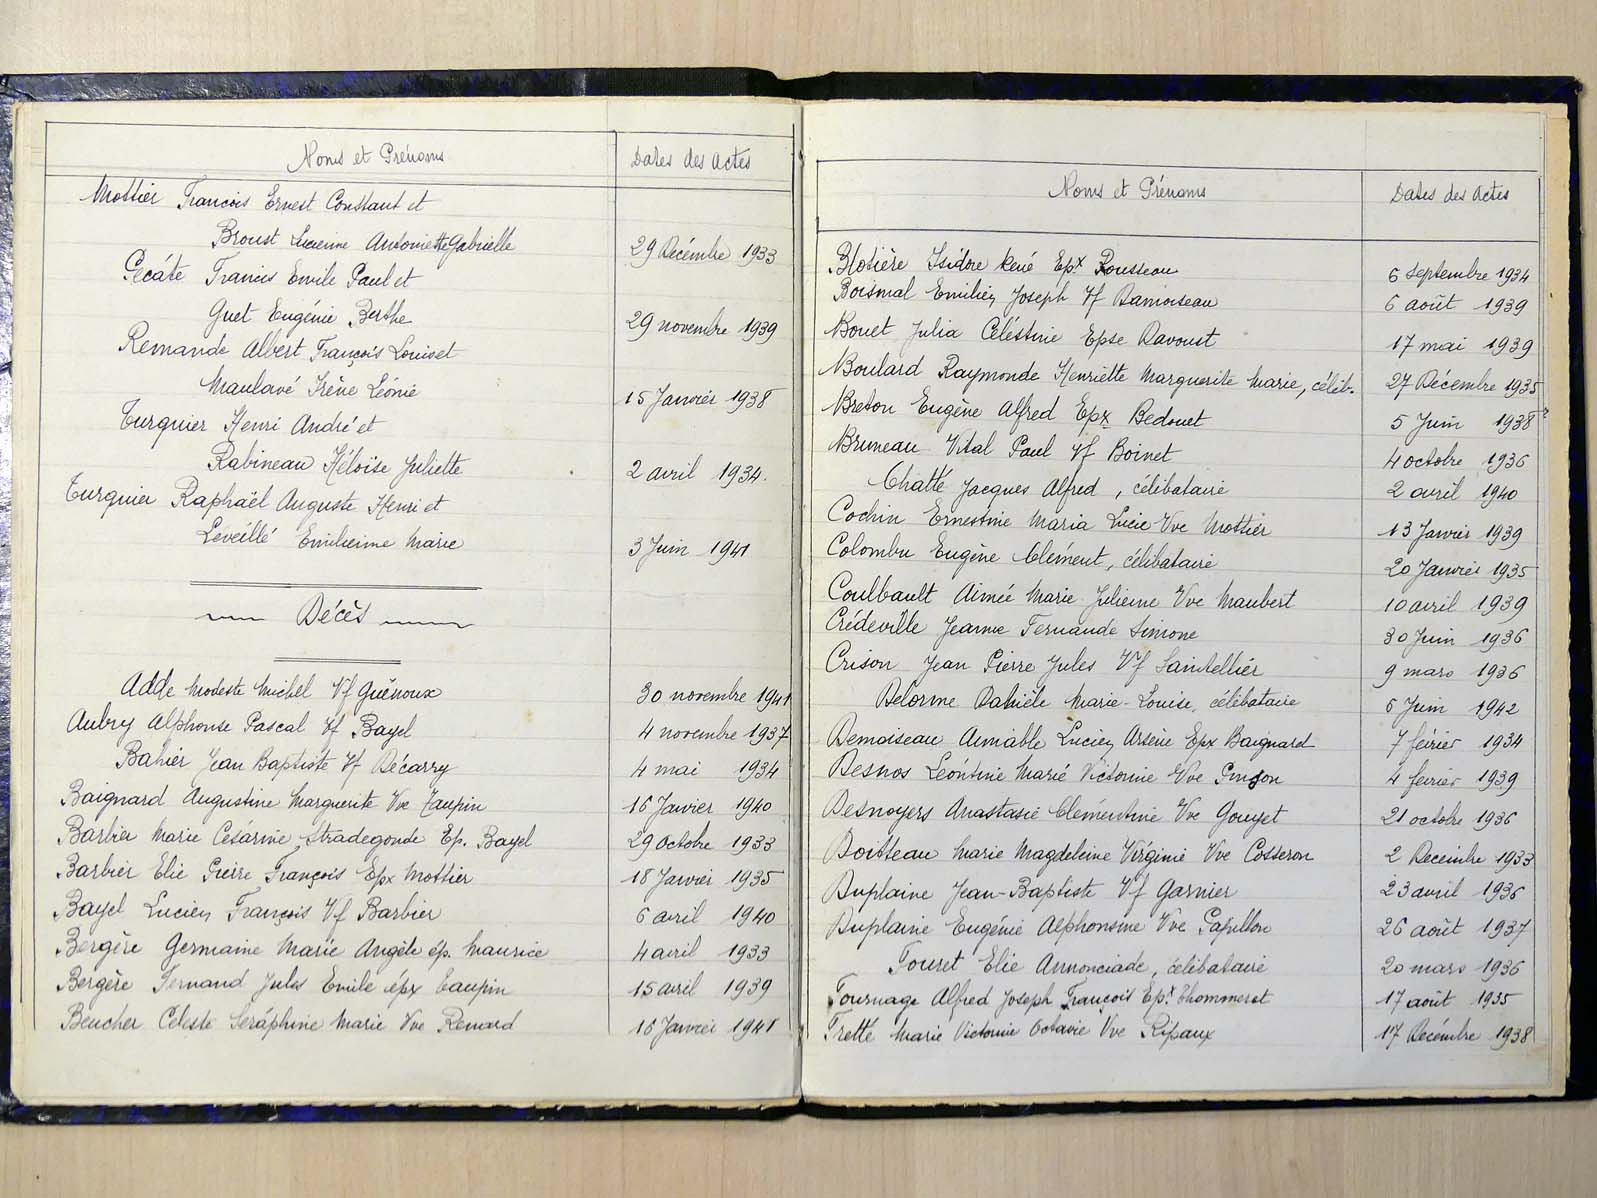 Noms et Prénoms Dates des Actes
Mottier François Ernest Constant et
Broust Lucienne Antoinette Gabrielle 29 Décembre 1933
Pecáte Francis Emile Paul et
Guet Eugénie Berthe 29 novembre 1939
Remande Albert François Louis et
Maulavé Irène Léonie 15 Janvier 1938
Turquier Henri André et
Rabineau Héloïse Juliette 2 avril 1934.
Turquier Raphaël Auguste Henri et
Leveillé Emilienne Marie 3 Juin 1941
Décès
Adde Modeste Michel Vf Guénoux 30 novembre 1941
Aubry Alphonse Pascal Vf Bayel 4 novembre 1937
Bahier Jean Baptiste Vf Décarry 4 mai 1934
Baignard Augustine Marguerite Vve Taupin 16 Janvier 1940
Barbier Marie Césarine Stradegonde Ep. Bayel 29 Octobre 1933
Barbier Elie Pierre François Epx Mottier 18 Janvier 1935
Bayel Lucien François Vf Barbier 6 avril 1940
Bergère Germaine Marie Angèle ép. Maurice 4 avril 1933
Bergère Fernand Jules Emile épx Taupin 15 avril 1939
Beucher Céleste Séraphine Marie Vve Renard 16 Janvier 1941
Noms et Prénoms Dates des Actes
Blotière Isidore René Epx Rousseau 6 septembre 1934
Boismal Emilien Joseph Vf Damoiseau 6 août 1939
Bouet Julia Célestine Epse Davoust 17 mai 1939
Boulard Raymonde Henriette Marguerite Marie, célib. 27 Décembre 1935
Breton Eugène Alfred Epx Bedouet 5 Juin 1938
Bruneau Vital Paul Vf Boinet 4 octobre 1936
Chatté Jacques Alfred, célibataire 2 avril 1940
Cochin Ernestine Maria Lucie Vve Mottier 13 Janvier 1939
Colombu Eugène Clément, célibataire 20 Janvier 1935
Coulbault Aimée Marie Julienne Vve Maubert 10 avril 1939
Crédeville Jeanne Fernande Simone 30 Juin 1936
Crison Jean Pierre Jules Vf Saintellier 9 mars 1936
Delorme Danièle Marie-Louise, célibataire 6 Juin 1942
Demoiseau Aimable Lucien Arsène Epx Baignard 7 février 1934
Desnos Léontine Marie Victorine Vve Pinson 4 février 1939
Desnoyers Anastasie Clémentine Vve Gouyet 21 octobre 1936
Doitteau Marie Magdeleine Virginie Vve Cosseron 2 Décembre 1933
Duplaine Jean-Baptiste Vf Garnier 23 avril 1936
Duplaine Eugénie Alphonsine Vve Papillon 26 août 1937
Fouret Elie Annonciade, célibataire 20 mars 1936
Fournage Alfred Joseph François Epx Thommeret 17 août 1935
Fretté Marie Victorine Octavie Vve Ripaux 17 Décembre 1938